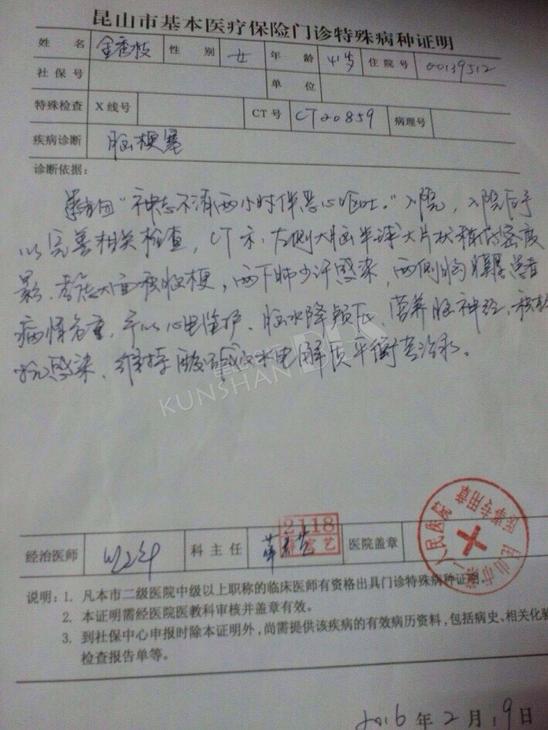 昆山市基本医疗保险门诊特殊病种证明
姓名 金 枝 性别 女 年龄 41岁 住院号 00139512
社保号 单位
特殊检查 X线号 CT号 CT20859 病理号
疾病诊断 脑梗塞
诊断依据:
患者因“神志不清两小时伴恶心呕吐。”入院,入院后予
以完善相关检查,CT示:左侧大脑半球大片状稍低密度
影,考虑大面积脑梗,两下肺少许感染,两侧胸膜 患者
病情危重,予以心电监护、脱水降颅压、营养脑神经、
抗感染、维持酸碱及水电解质平衡等治疗。
KUNSHAN
经治医师 科主任 2118 医院盖章
昆山市第 人民医院
医 专用章
说明:1. 凡本市二级医院中级以上职称的临床医师有资格出具门诊特殊病种证明。
2. 本证明需经医院医教科审核并盖章有效。
3. 到社保中心申报时除本证明外,尚需提供该疾病的有效病历资料,包括病史、相关化验
检查报告单等。
2016年2月19日